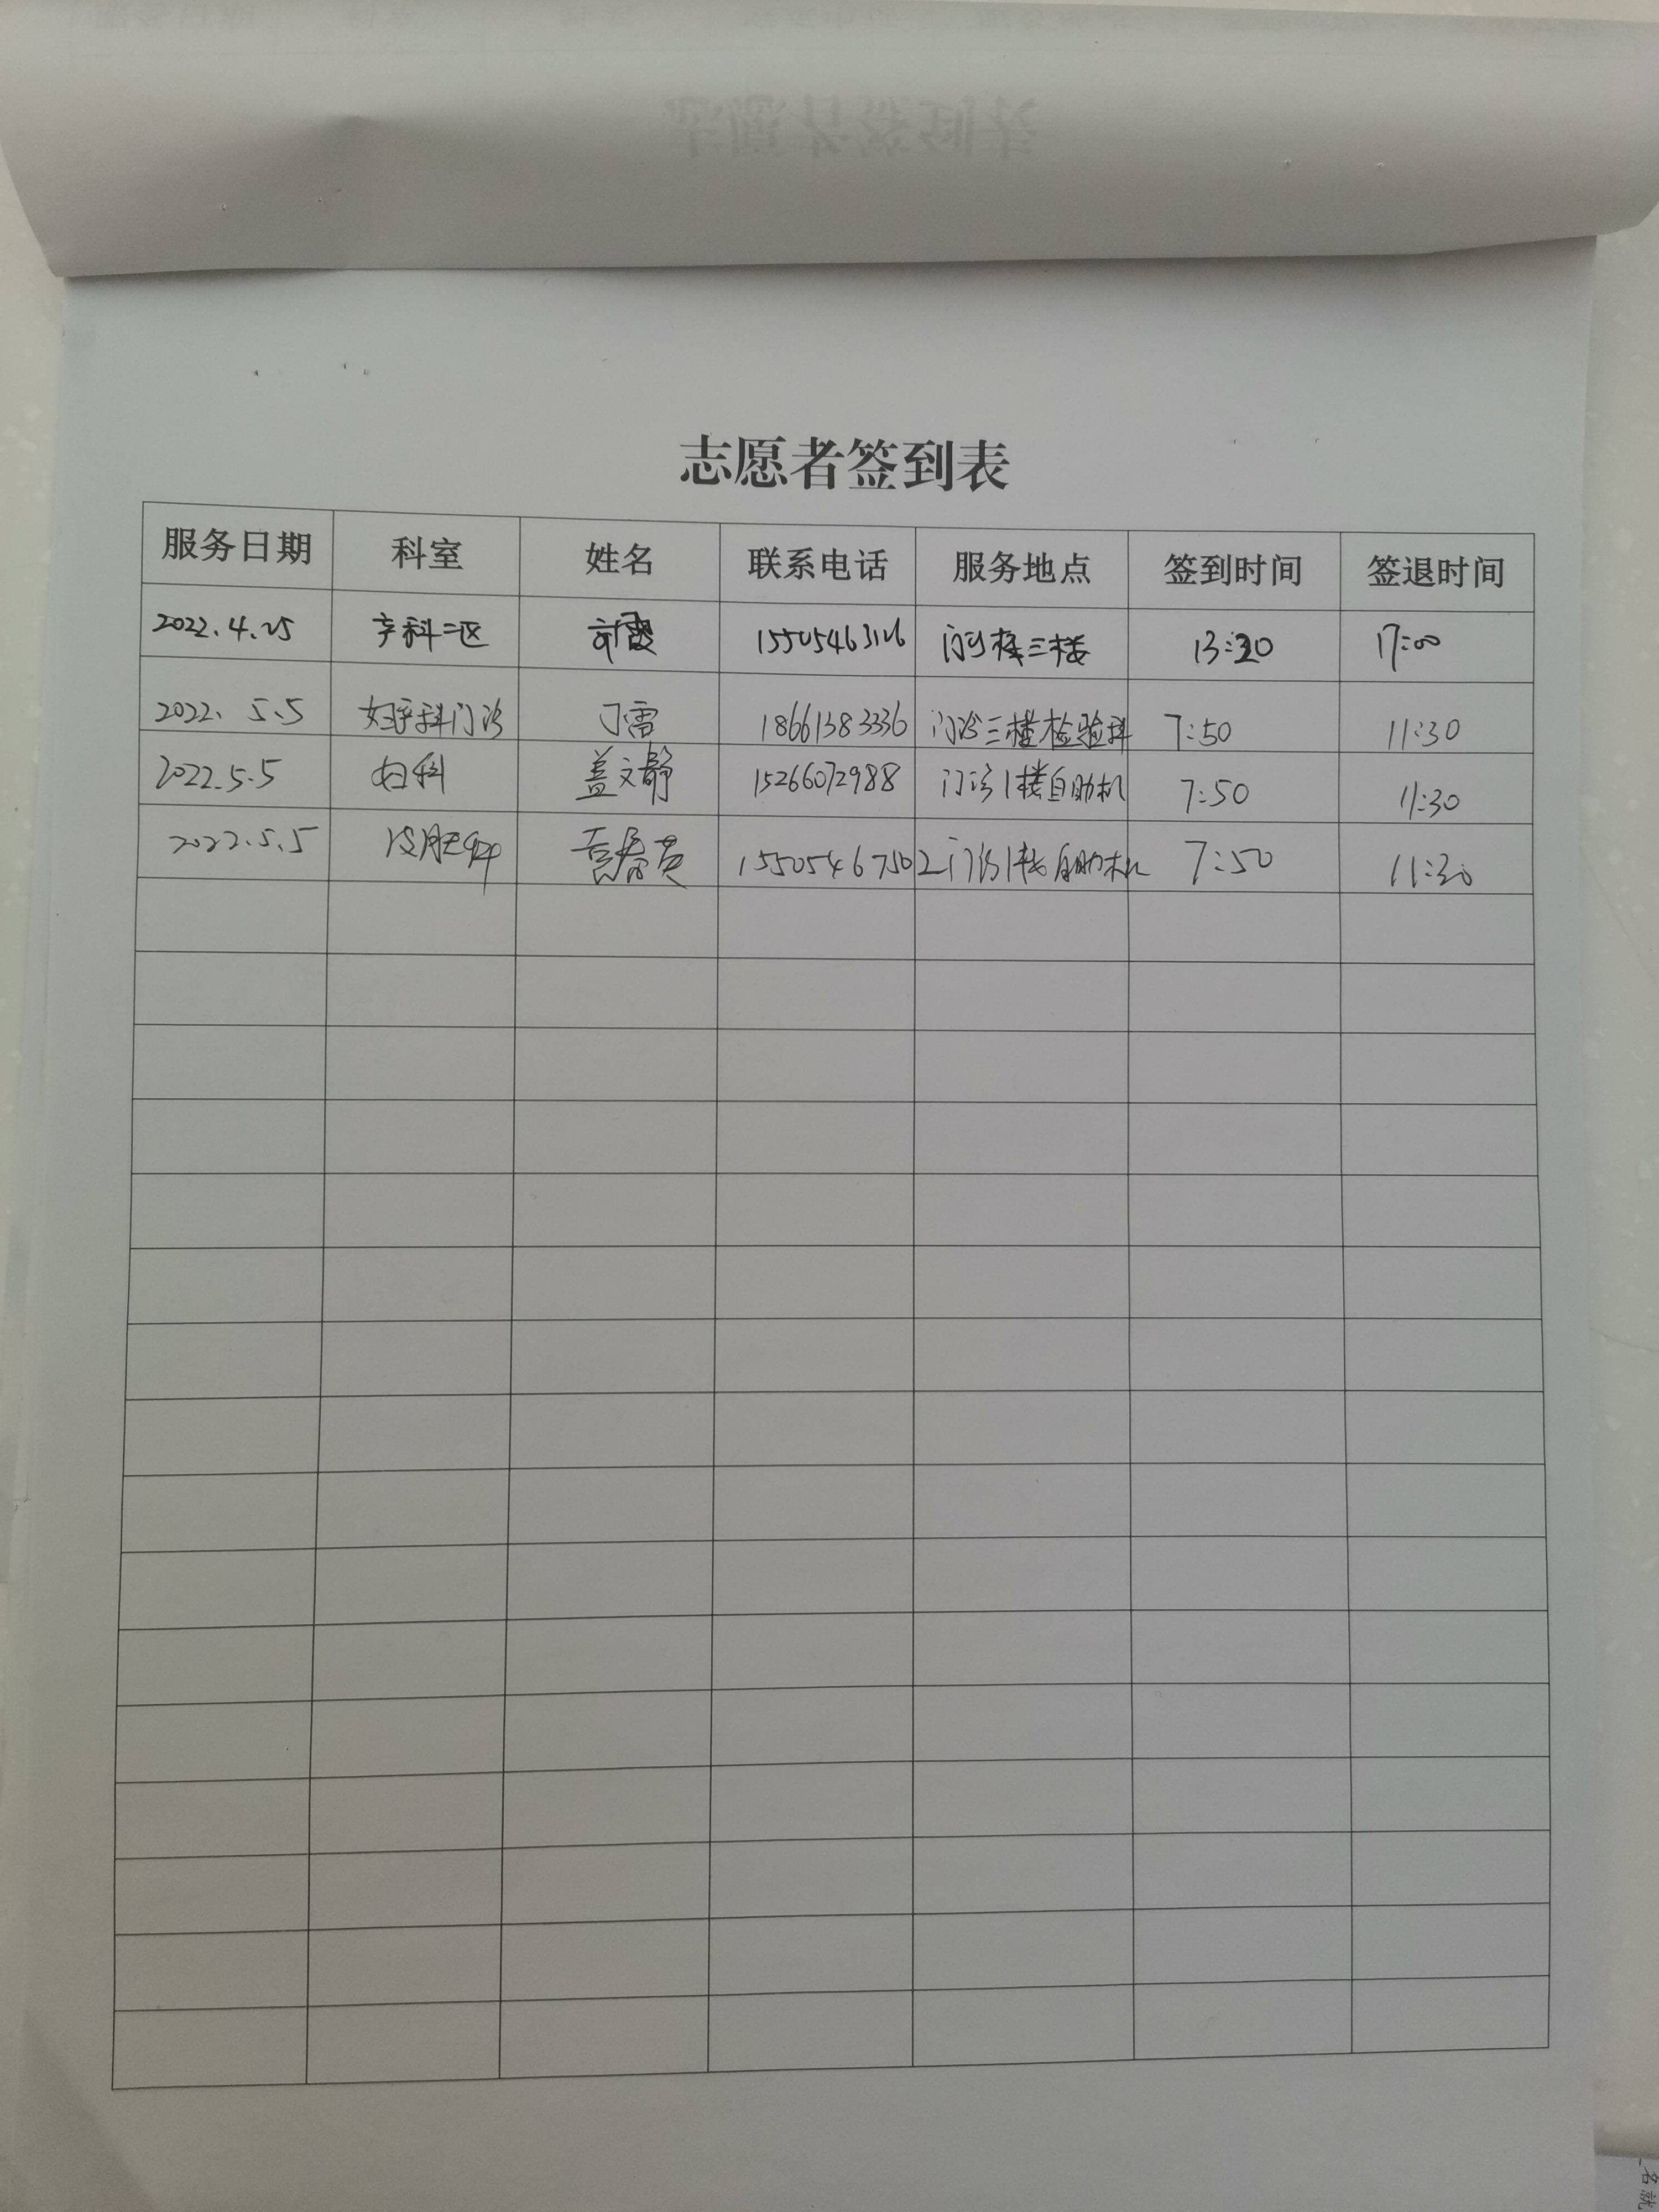 志愿者签到表
服务日期 科室 姓名 联系电话 服务地点 签到时间 签退时间
2022.4.25 产科二区 刘霞 15505463126 门诊楼三楼 13:20 17:00
2022. 5.5 妇产科门诊 丁雷 18661383336 门诊三楼检验科 7:50 11:30
2022.5.5 妇科 盖文静 15266072988 门诊1楼自助机 7:50 11:30
2022.5.5 皮肤科 袁春英 15505467502 门诊1楼自助机 7:50 11:30